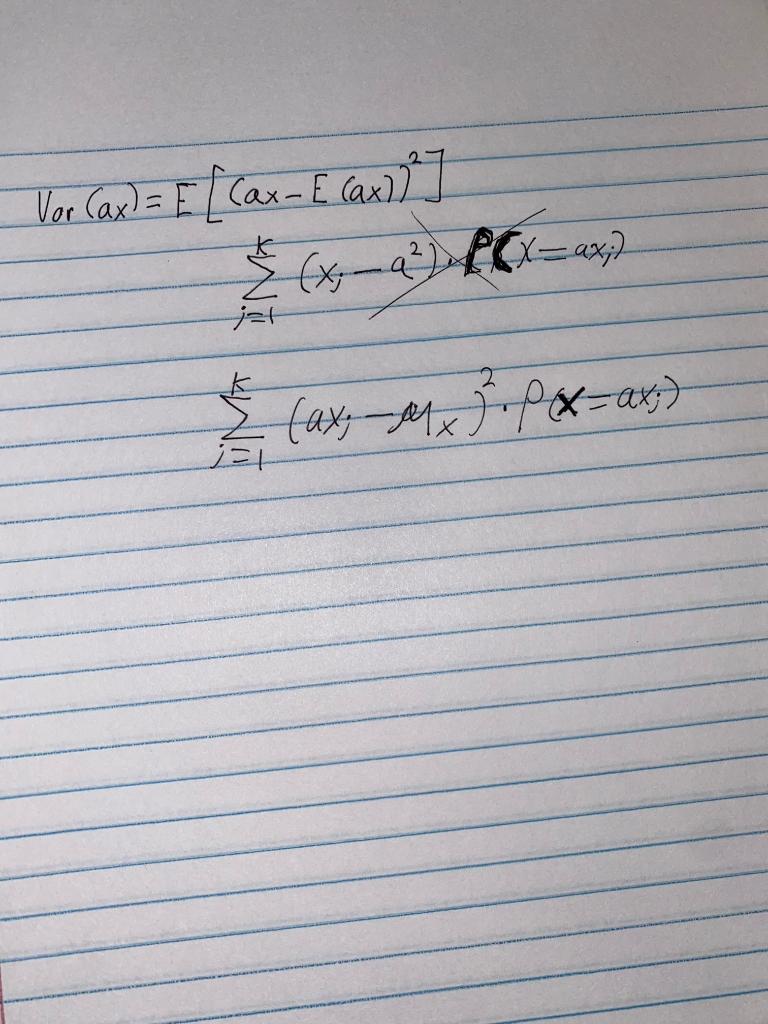 Var(ax) = E[(ax - E(ax))²]
K Σ j=1 (xⱼ - a²) · P(X = axⱼ)
K Σ j=1 (axⱼ - μₓ)² · P(X = axⱼ)